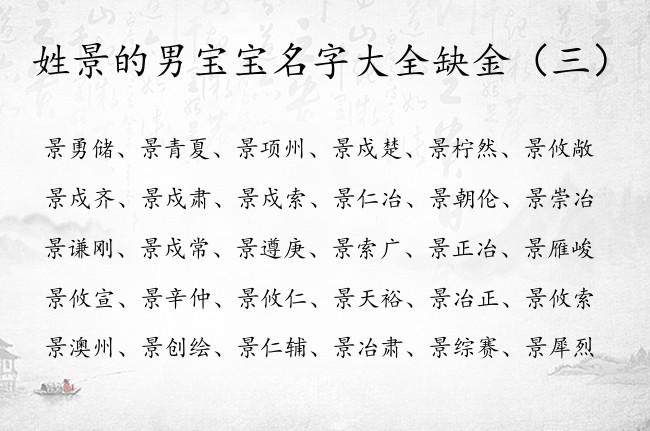 姓景的男宝宝名字大全缺金（三）
景勇储、景青夏、景项州、景戍楚、景柠然、景攸敞
景戍齐、景戍肃、景戍索、景仁冶、景朝伦、景崇冶
景谦刚、景戍常、景遵庚、景索广、景正冶、景雁峻
景攸宣、景辛仲、景攸仁、景天裕、景冶正、景攸索
景澳州、景创绘、景仁辅、景冶肃、景综赛、景犀烈